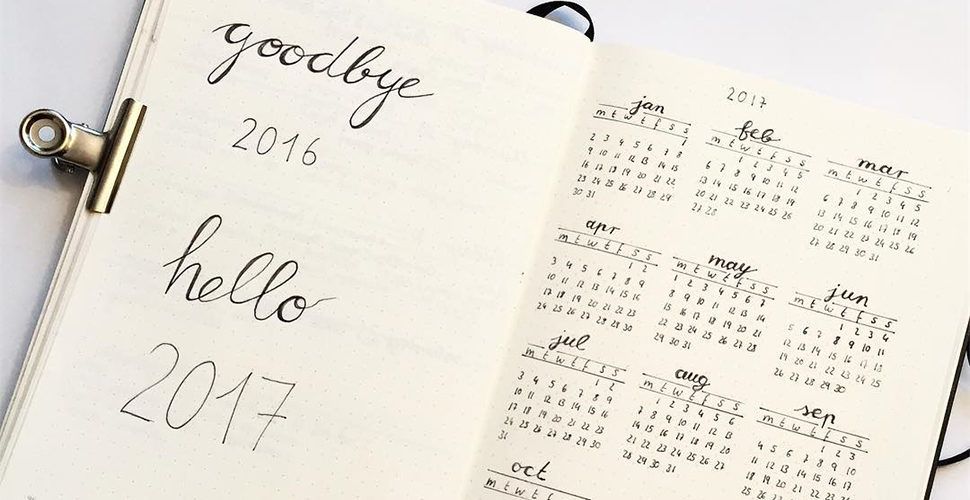 goodbye
2016
hello
2017
2017
jan
m t w t f s s
1
2 3 4 5 6 7 8
9 10 11 12 13 14 15
16 17 18 19 20 21 22
23 24 25 26 27 28 29
30 31
feb
m t w t f s s
1 2 3 4 5
6 7 8 9 10 11 12
13 14 15 16 17 18 19
20 21 22 23 24 25 26
27 28
mar
m t w t f s s
1 2 3 4 5
6 7 8 9 10 11 12
13 14 15 16 17 18 19
20 21 22 23 24 25 26
27 28 29 30 31
apr
m t w t f s s
1 2
3 4 5 6 7 8 9
10 11 12 13 14 15 16
17 18 19 20 21 22 23
24 25 26 27 28 29 30
may
m t w t f s s
1 2 3 4 5 6 7
8 9 10 11 12 13 14
15 16 17 18 19 20 21
22 23 24 25 26 27 28
29 30 31
jun
m t w t f s s
1 2 3 4
5 6 7 8 9 10 11
12 13 14 15 16 17 18
19 20 21 22 23 24 25
26 27 28 29 30
jul
m t w t f s s
1 2
3 4 5 6 7 8 9
10 11 12 13 14 15 16
17 18 19 20 21 22 23
24 25 26 27 28 29 30
31
aug
m t w t f s s
1 2 3 4 5 6
7 8 9 10 11 12 13
14 15 16 17 18 19 20
21 22 23 24 25 26 27
28 29 30 31
sep
m t w t f s s
1 2 3
4 5 6 7 8 9 10
11 12 13 14 15 16 17
18 19 20 21 22 23 24
25 26
oct
m t w t f s s